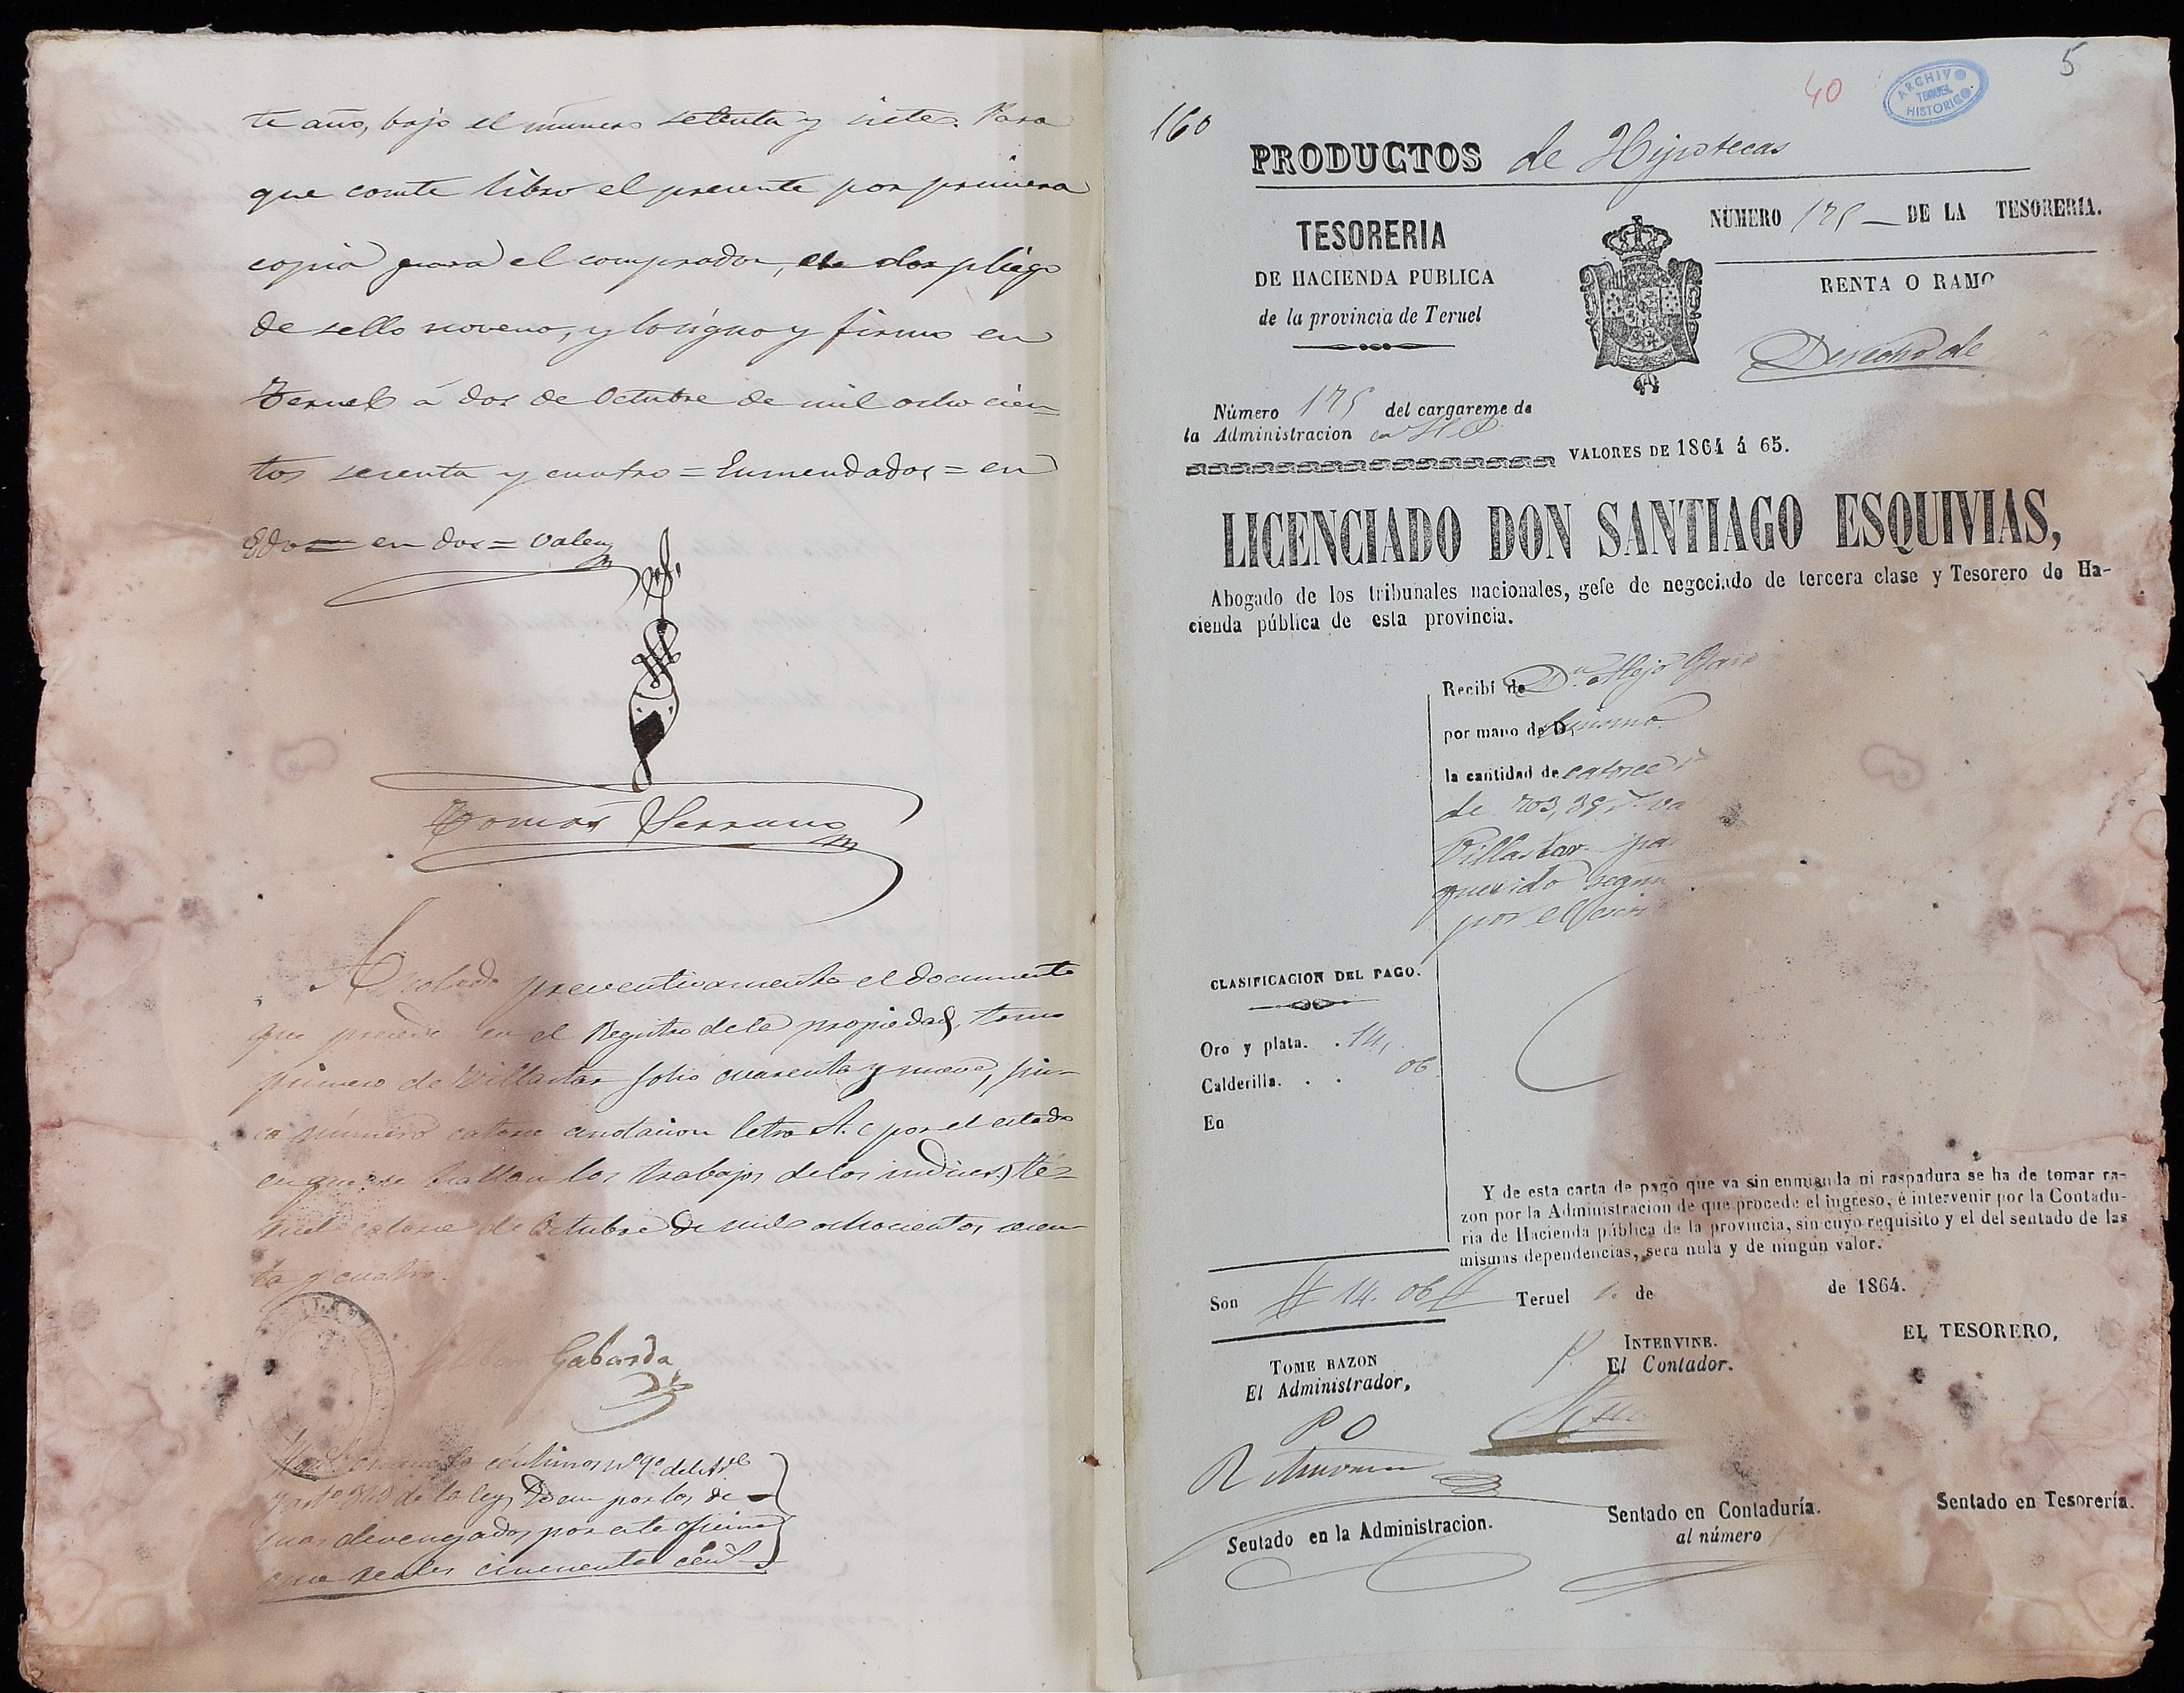 te año, bajo el número setenta y siete. Para
que conste libro el presente por primera
copia para el comprador, en dos pliego
de sello noveno, y lo signo y firmo en
Teruel á dos de Octubre de mil ochocien
tos sesenta y cuatro = Enmendados = en
Edos = en dos = Valen
Tomás Serrano
Anotado preventivamente el documento
que precede en el Registro de la propiedad, tomo
primero de Villastar folio cuarenta y nueve, fin-
ca número catorce anotacion letra A. (por el estado
en que se hallan los trabajos de los indices) Te-
ruel catorce de Octubre de mil ochocientos sesen
ta y cuatro.
Esteban Gabarda
céntimos nº 9º del Arl
y artº 343 de la ley, por los de
mas devengados por esta oficina
reales cincuenta cént
5
40
ARCHIVO
TERUEL
HISTORICO
160
PRODUCTOS de Hipotecas
TESORERIA
DE HACIENDA PUBLICA
de la provincia de Teruel
NÚMERO 175 DE LA TESORERÍA.
RENTA O RAMO
Derecho de
Número 175 del cargareme de
la Administracion
VALORES DE 1864 á 65.
LICENCIADO DON SANTIAGO ESQUIVIAS,
Abogado de los tribunales nacionales, gefe de negociado de tercera clase y Tesorero de Ha-
cienda pública de esta provincia.
Recibí de Dn Alejo
por mano de D. el mismo
la cantidad de catorce
de 703,39
Villastar
querido segun
por el
CLASIFICACION DEL PAGO.
Oro y plata. . 14,
Calderilla. . . 06
En
Y de esta carta de pago que va sin enmienda ni raspadura se ha de tomar ra-
zon por la Administracion de que procede el ingreso, é intervenir por la Contadu-
ria de Hacienda pública de la provincia, sin cuyo requisito y el del sentado de las
mismas dependencias, sera nula y de ningun valor.
Son # 14. 06 #
Teruel de de 1864.
TOME RAZON
El Administrador,
P O
INTERVINE.
El Contador.
EL TESORERO,
Sentado en la Administracion.
Sentado en Contaduría.
al número
Sentado en Tesorería.